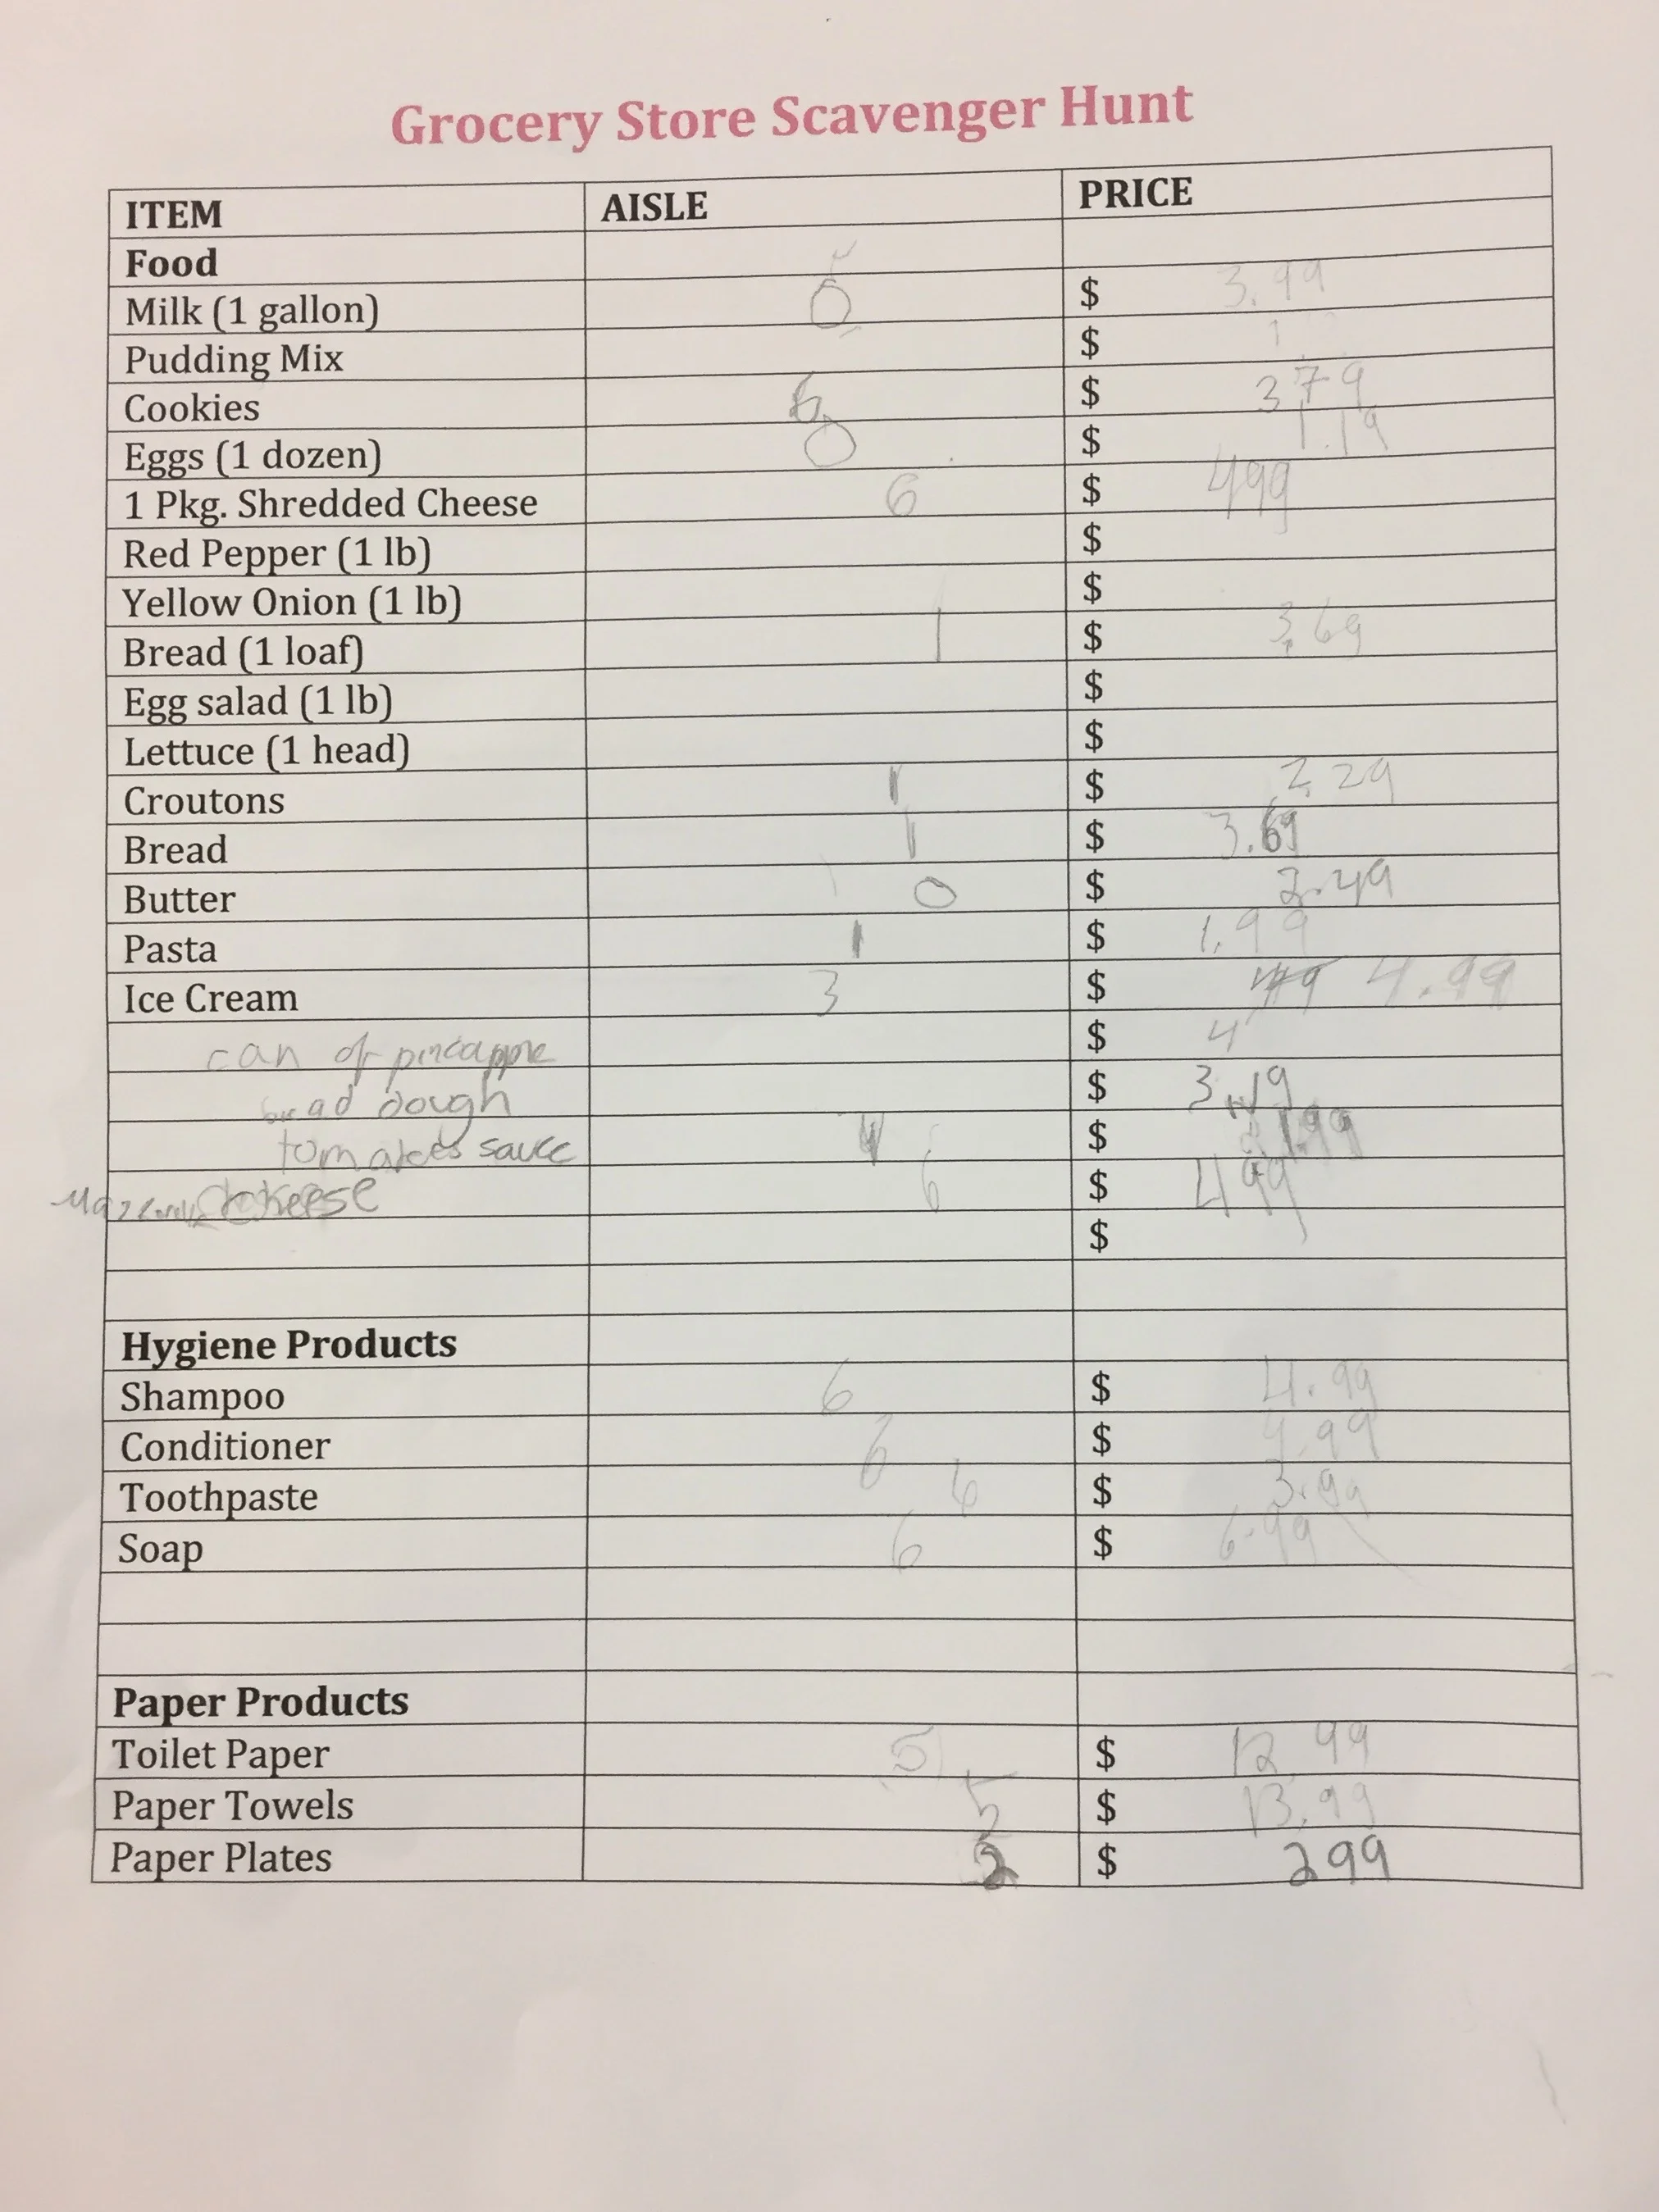 Grocery Store Scavenger Hunt
ITEM AISLE PRICE
Food
Milk (1 gallon) 0 $ 3.99
Pudding Mix $
Cookies 6 $ 3.79
Eggs (1 dozen) 0 $ 1.19
1 Pkg. Shredded Cheese 6 $ 499
Red Pepper (1 lb) $
Yellow Onion (1 lb) $
Bread (1 loaf) 1 $ 3.69
Egg salad (1 lb) $
Lettuce (1 head) $
Croutons 1 $ 2.29
Bread 1 $ 3.69
Butter 0 $ 2.49
Pasta 1 $ 1.99
Ice Cream 3 $ 4.99
can of pineapple $ 4
bread dough $ 3.19
tomatoes sauce $ 1.99
cheese 6 $ 499
$
Hygiene Products
Shampoo 6 $ 4.99
Conditioner 6 $ 4.99
Toothpaste 6 $ 3.99
Soap 6 $ 6.99
Paper Products
Toilet Paper 5 $ 12.99
Paper Towels 5 $ 13.99
Paper Plates 2 $ 299